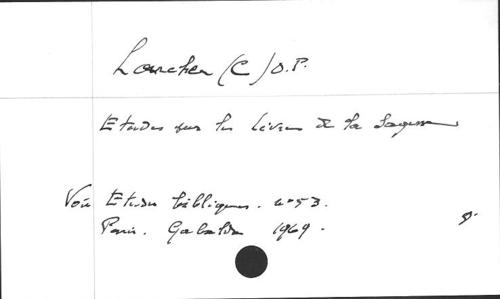 Larcher (C) O.P.
Etudes sur le Livre de la Sagesse
Voir Etudes bibliques. n° 53.
Paris. Gabalda 1969.